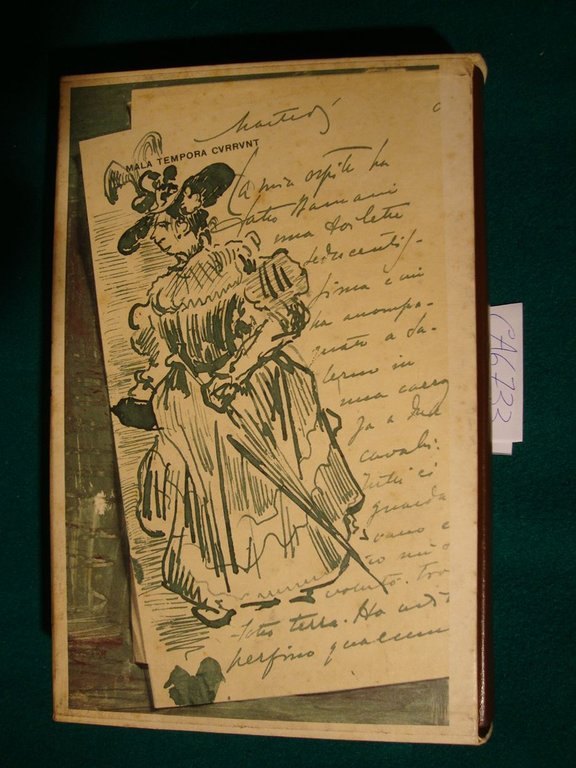 Martedì
MALA TEMPORA CVRRVNT
La mia ospite ha
fatto
una toilette
seducentis-
sima e mi
ha accompa-
gnato a Sa-
lerno in
una carroz
za a due
cavalli.
Tutti ci
guarda
vano e
io mi s
voluto. tro
sotto terra. Ha
perfino qualcun
CA6733